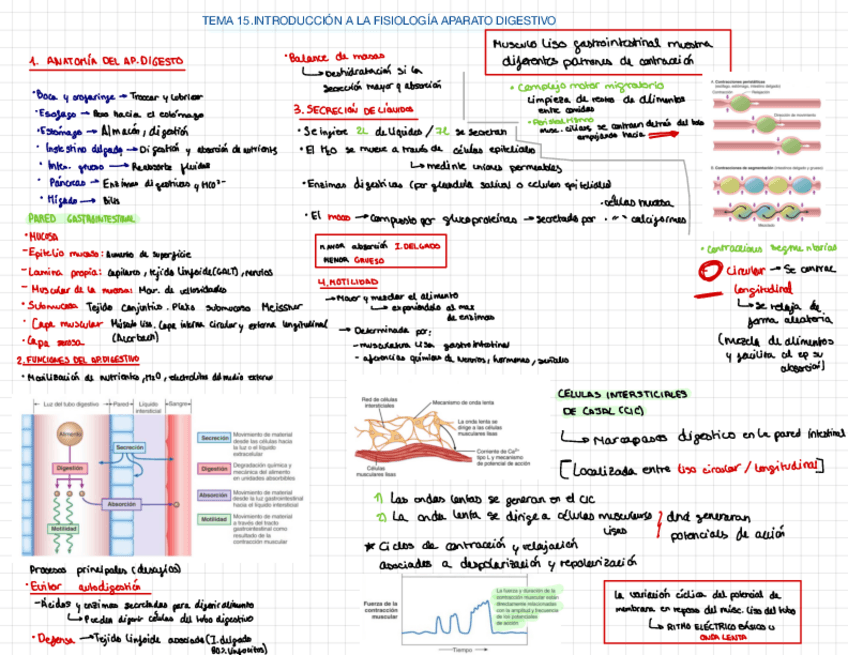 TEMA 15.INTRODUCCIÓN A LA FISIOLOGÍA APARATO DIGESTIVO
1. ANATOMÍA DEL AP.DIGESTO
• Boca y orofaringe → Trocear y lubricar
• Esofago → Paso hacia el estómago
• Estómago → Almacén, digestión
• Instestino delgado → Digestión y absorción de nutrients
• Inten. grueso → Reabsorbe fluidos
• Páncreas → Enzimas digestivas y HCO³⁻
• Hígado → Bilis
PARED GASTROINTESTINAL
• MUCOSA
- Epitelio mucoso: Aumento de superficie
- Lamina propia: capilares, tejido linfoide (GALT), nervios
- Muscular de la mucosa: Mov. de vellosidades
• Submucosa Tejido conjuntivo. Plexo submucoso Meissner
• Capa muscular Músculo liso. Capa interna circular y externa longitudinal
(Auerbach)
• Capa serosa
2. FUNCIONES DEL AP.DIGESTIVO
• Movilización de nutrientes, H₂O, electrolitos del medio externo
• Balance de masas
↳ Deshidratación si la
secreción mayor q absorción
3. SECRECIÓN DE LÍQUIDOS
• Se ingiere 2L de líquidos / 7L se secretan
• El H₂O se mueve a través de células epiteliales
↳ mediante uniones permeables
• Enzimas digestivas (por glandula salival o celulas epiteliales)
• células mucosa
• El moco → compuesto por glucoproteinas → secretado por • " " caliciformes
MAYOR absorción I.DELGADO
MENOR GRUESO
4. MOTILIDAD
→ Mover y mezclar el alimento
↳ exponiendolo al max
de enzimas
→ Determinada por:
- musculatura lisa gastrointestinal
- aferencias químicas de nervios, hormonas, señales
Musculo liso gastrointestinal muestra
diferentes patrones de contracción
• Complejo motor migratorio
Limpieza de restos de alimentos
entre comidas
• Peristaltismo
musc. circular se contraen detrás del bolo
empujando hacia →
A. Contracciones peristálticas
(esófago, estómago, intestino delgado)
Contracción
Relajación
Dirección de movimiento
B. Contracciones de segmentación (intestinos delgado y grueso)
Mezclado
• contracciones segmentarias
Circular → Se contrae
longitudinal
↳ se relaja de
forma aleatoria
(mezcla de alimentos
y facilita al ep su
absorción)
Luz del tubo digestivo
Pared
Líquido
intersticial
Sangre
Alimento
Secreción
Digestión
Absorción
Motilidad
Secreción Movimiento de material
desde las células hacia
la luz o el líquido
extracelular
Digestión Degradación química y
mecánica del alimento
en unidades absorbibles
Absorción Movimiento de material
desde la luz gastrointestinal
hacia el líquido intersticial
Motilidad Movimiento de material
a través del tracto
gastrointestinal como
resultado de la
contracción muscular
Procesos principales (desafíos)
• Evitar autodigestión
- Ácidos y enzimas secretadas para digerir alimento
↳ Pueden digerir células del tubo digestivo
• Defensa → Tejido linfoide asociado (I.delgado
80% linfocitos)
Red de células
intersticiales
Mecanismo de onda lenta
La onda lenta se
dirige a las células
musculares lisas
Corriente de Ca²⁺
tipo L y mecanismo
de potencial de acción
Células
musculares lisas
CÉLULAS INTERSTICIALES
DE CAJAL (CIC)
↳ Marcapasos digestico en la pared intestinal
[Localizada entre liso circular / longitudinal]
1) Las ondas lentas se generan en el CIC
2) La onda lenta se dirige a células musculares
lisas
dnd generaran
potenciales de acción
* Ciclos de contracción y relajación
asociades a despolarización y repolarización
Fuerza de la
contracción
muscular
La fuerza y duración de la
contracción muscular están
directamente relacionadas
con la amplitud y frecuencia
de los potenciales
de acción
Tiempo
La variación cíclica del potencial de
membrana en reposo del músc. liso del tubo
↳ RITMO ELÉCTRICO BÁSICO U
ONDA LENTA